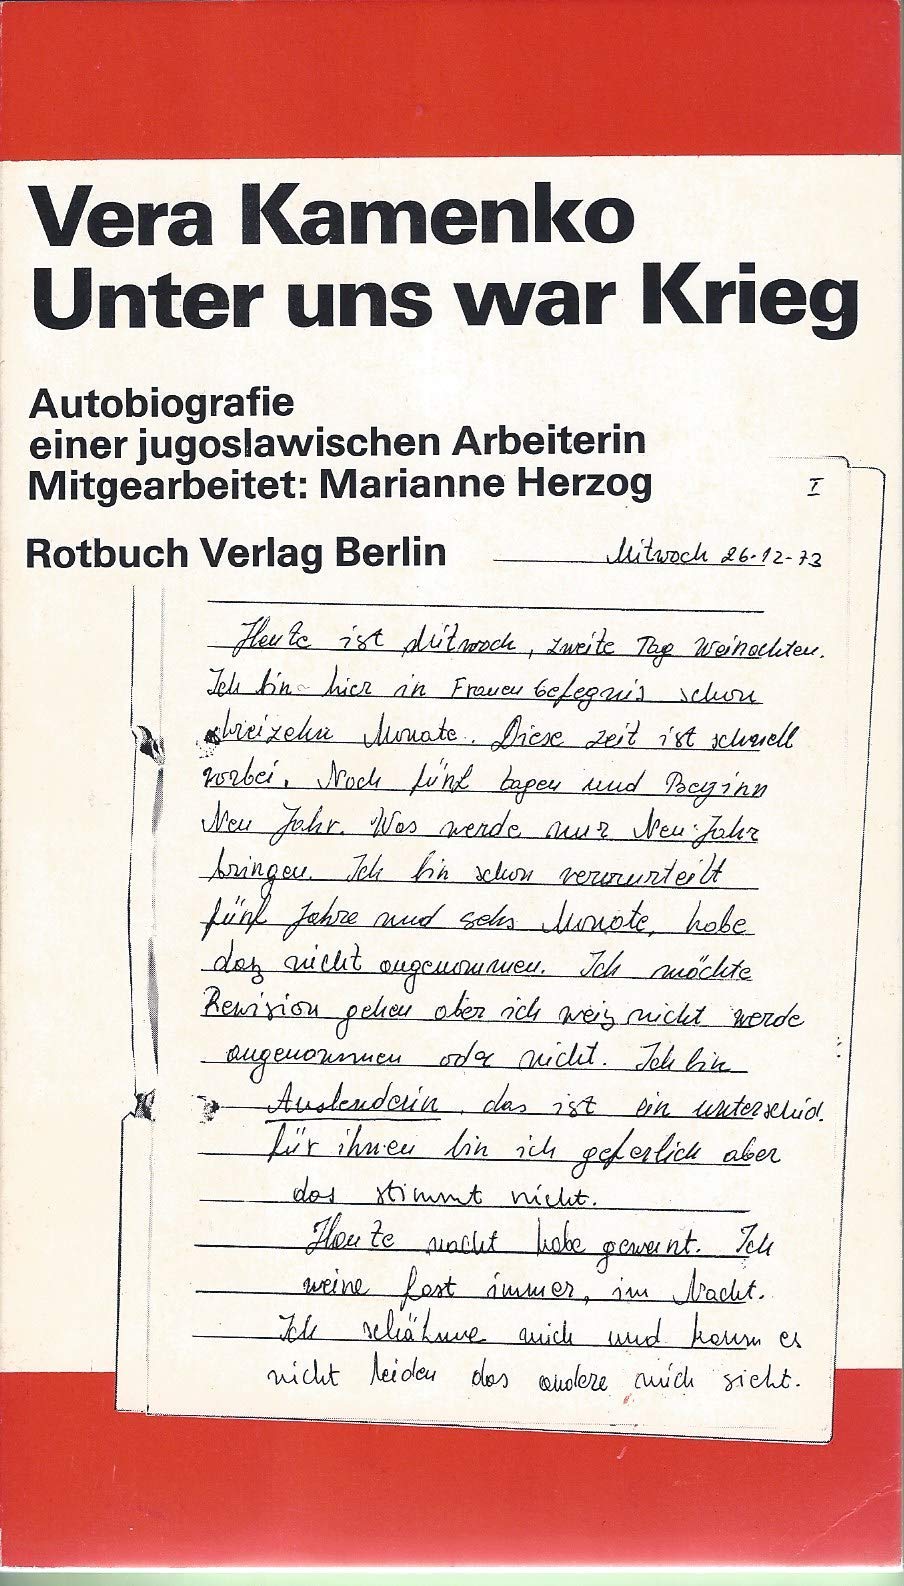 Vera Kamenko
Unter uns war Krieg
Autobiografie
einer jugoslawischen Arbeiterin
Mitgearbeitet: Marianne Herzog
I
Rotbuch Verlag Berlin
Mitwoch 26-12-73
Heute ist Mitwoch, zweite Tag Weinachten.
Ich bin hier in Frauen Gefegnis schon
dreizehn Monate. Diese zeit ist schnell
vorbei. Noch fünf tagen und Beginn
Neu Jahr. Was werde mir Neu Jahr
bringen. Ich bin schon verwurteilt
fünf Jahre und sehs Monate, habe
daß nicht angenommen. Ich möchte
Revision gehen aber ich weiß nicht werde
angenommen oder nicht. Ich bin
Auslenderin, das ist ein unterschid.
für ihnen bin ich geferlich aber
das stimmt nicht.
Heute nacht habe geweint. Ich
weine fast immer, im Nacht.
Ich schähme mich und kann es
nicht leiden das andere mich sieht.